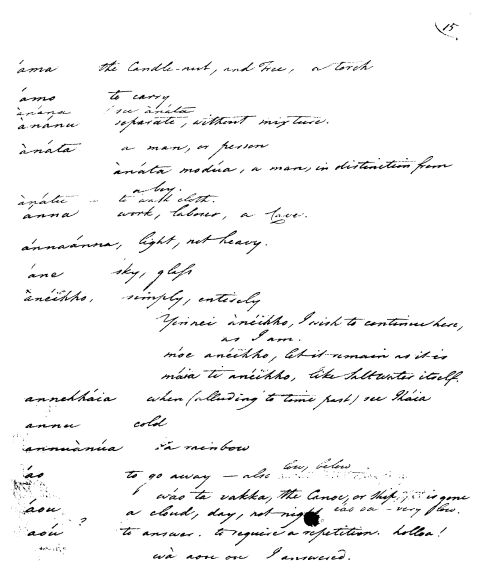 15
áma the Candle-nut, and Tree, a torch
ámo to carry
ànána see ànáta
ànanu separate, without mixture.
ànáta a man, or person
ànáta modúa, a man, in distinction from
a boy.
ànátu – to wash cloth.
anna work, labour, a
ánnaánna, light, not heavy.
áne sky, glass
ànéikho, simply, entirely
Yinnei ànéikho, I wish to continue here,
as I am.
móe anéikho, let it remain as it is
máia te anéikho, like Salt water itself.
annekháia when (alluding to time past) see Iháia
annu cold
annuànúa a rainbow
áo to go away – also low, below
wáo ta vakka, the Canoe, or Ship, is gone
áou a cloud, day, not night – very low.
aoú ? to answer. to require a repetition. holloa!
wà aou ou I answered.